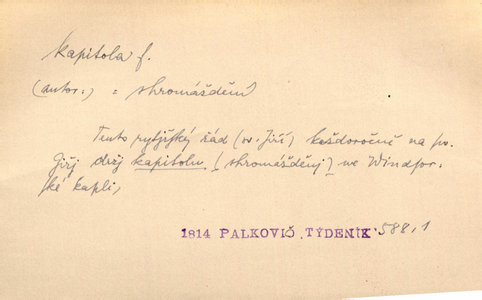 kapitola f.
(autor:) = shromáždění
Tento rytjřský řád (sv. Jiří) každoročně na
držj kapitolu (shromážděnj) we Windsor-
ské kapli,
1814 PALKOVIČ, TÝDENÍK 588,1